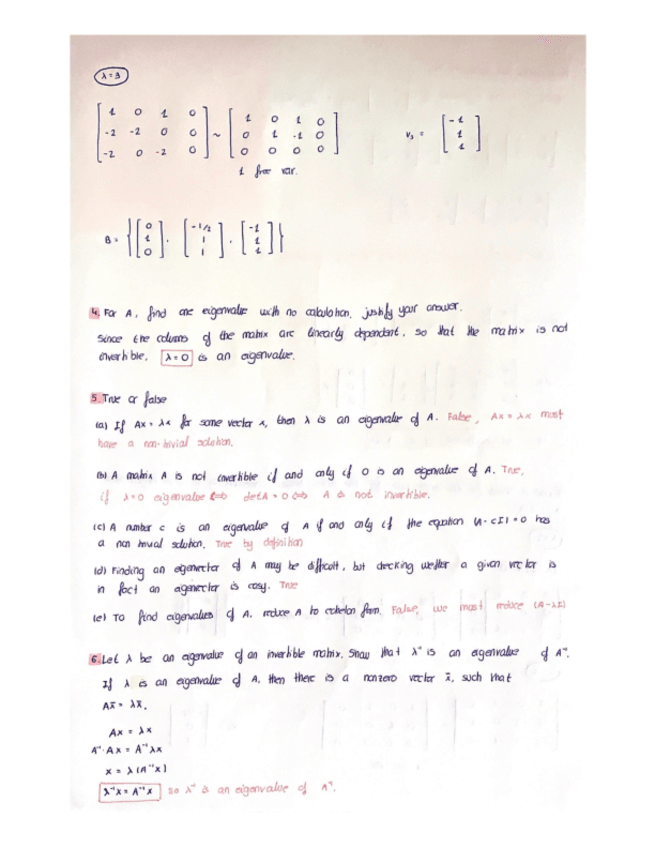 λ=3
[ 1 0 1 0 ; -2 -2 0 0 ; -2 0 -2 0 ] ~ [ 1 0 1 0 ; 0 1 -1 0 ; 0 0 0 0 ] v₃ = [ -1 ; 1 ; 1 ]
1 free var.
B = { [ 0 ; 1 ; 0 ] , [ -1/2 ; 1 ; 1 ] , [ -1 ; 1 ; 1 ] }
4. For A, find one eigenvalue with no calculation. justify your answer.
Since the columns of the matrix are linearly dependent, so that the matrix is not
invertible. λ=0 is an eigenvalue.
5. True or false
(a) If Ax = λx for some vector x, then λ is an eigenvalue of A. False, Ax = λx must
have a non-trivial solution.
(b) A matrix A is not invertible if and only if 0 is an eigenvalue of A. True,
if λ=0 eigenvalue ⟺ det A = 0 ⟺ A is not invertible.
(c) A number c is an eigenvalue of A if and only if the equation (A-cI) = 0 has
a non trivial solution. True by definition
(d) Finding an eigenvector of A may be difficult, but checking wether a given vector is
in fact an eigenvector is easy. True
(e) To find eigenvalues of A, reduce A to echelon form. False, we must reduce (A-λI)
6. Let λ be an eigenvalue of an invertible matrix. Show that λ⁻¹ is an eigenvalue of A⁻¹.
If λ is an eigenvalue of A, then there is a nonzero vector x̄, such that
Ax̄ = λx̄.
Ax = λx
A⁻¹·Ax = A⁻¹λx
x = λ(A⁻¹x)
λ⁻¹x = A⁻¹x so λ⁻¹ is an eigenvalue of A⁻¹.